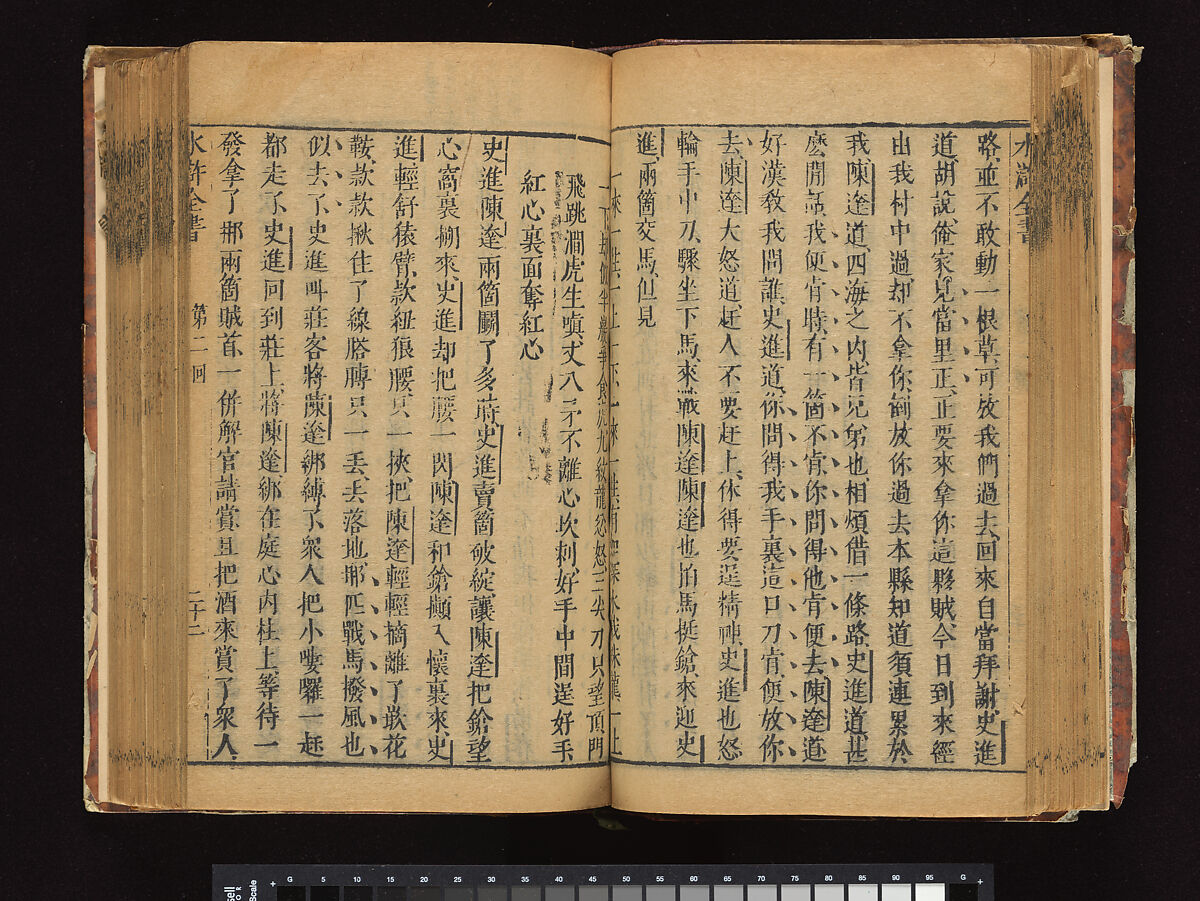 水滸全書
路並不敢動一根草可放我們過去回來自當拜謝史進
道胡說俺家見當里正正要來拿你這夥賊今日到來經
由我村中過却不拿你倒放你過去本縣知道須連累於
我陳達道四海之內皆兄弟也相煩借一條路史進道甚
麽閒話我便肯時有一箇不肯你問得他肯便去陳達道
好漢敎我問誰史進道你問得我手裏這口刀肯便放你
去陳達大怒道赶人不要赶上休得要逞精神史進也怒
輪手中刀驟坐下馬來戰陳達陳達也拍馬挺鎗來迎史
進兩箇交馬但見
一來一往一上一下一來一往有如深水戲珠龍一上
一下却似半巖爭食虎九紋龍忿怒三尖刀只望頂門
飛跳澗虎生嗔丈八矛不離心坎刺好手中間逞好手
紅心裏面奪紅心
史進陳達兩箇鬬了多時史進賣箇破綻讓陳達把鎗望
心窩裏搠來史進却把腰一閃陳達和鎗攧入懷裏來史
進輕舒猿臂款紐狼腰只一挾把陳達輕輕摘離了嵌花
鞍款款揪住了線搭膊只一丟丟落地那匹戰馬撥風也
似去了史進叫莊客將陳達綁縛了衆人把小嘍囉一赶
都走了史進回到莊上將陳達綁在庭心內柱上等待一
發拿了那兩箇賊首一併解官請賞且把酒來賞了衆人
水滸全書 第二回 二十二
5 10 15 20 25 30 35 40 45 50 55 60 65 70 75 80 85 90 95